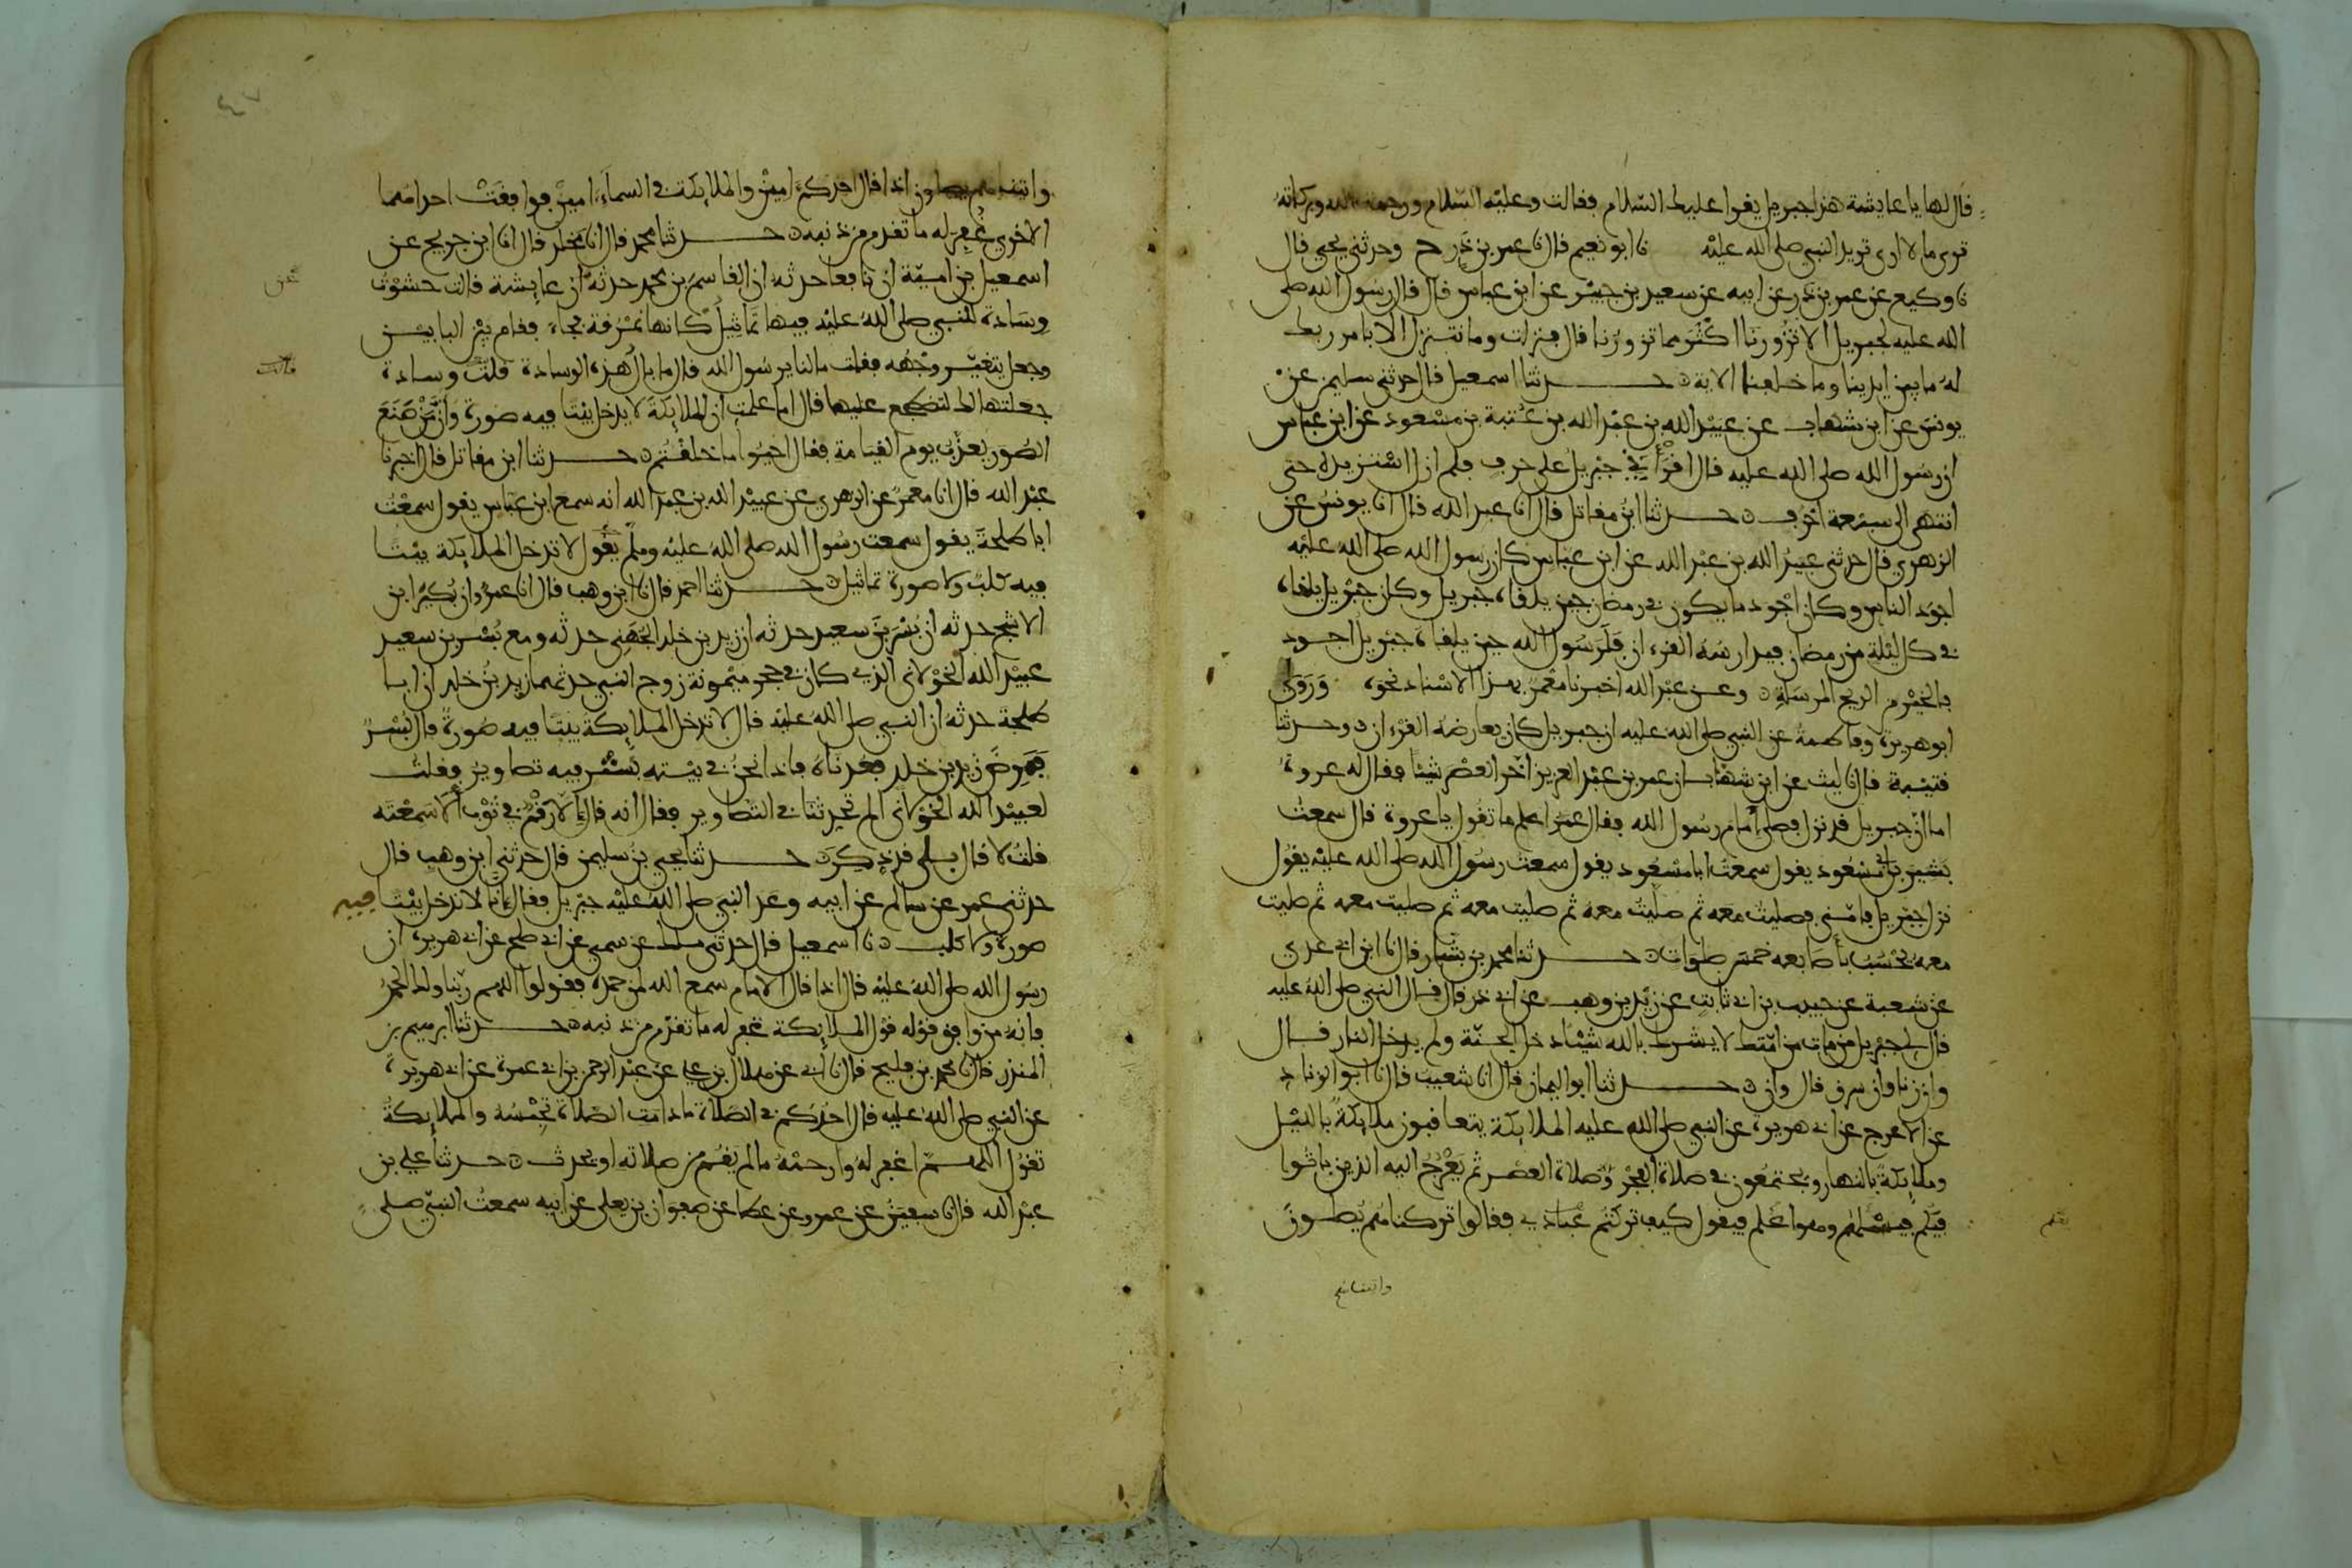 قال لها يا عايشة هذا جبريل يقرا عليك السلام فقالت وعليه السلام ورحمة الله وبركاته
ترى ما لا ارى تريد النبي صلى الله عليه نا ابو نعيم قال نا عمر بن ذر ح وحدثني يحيى قال
نا وكيع عن عمر بن ذر عن ابيه عن سعيد بن جبير عن ابن عباس قال قال رسول الله صلى
الله عليه لجبريل الا تزورنا اكثر مما تزورنا قال فنزلت وما نتنزل الا بامر ربك
له ما بين ايدينا وما خلفنا الاية حدثنا اسمعيل قال حدثني سليمن عن
يونس عن ابن شهاب عن عبيد الله بن عبد الله بن عتبة بن مسعود عن ابن عباس
ان رسول الله صلى الله عليه قال اقرأني جبريل على حرف فلم ازل استزيده حتى
انتهى الى سبعة احرف حدثنا ابن مقاتل قال انا عبد الله قال انا يونس عن
الزهري قال حدثني عبيد الله بن عبد الله عن ابن عباس كان رسول الله صلى الله عليه
اجود الناس وكان اجود ما يكون في رمضان حين يلقاه جبريل وكان جبريل يلقاه
في كل ليلة من رمضان فيدارسه القرءان فلرسول الله حين يلقاه جبريل اجود
بالخير من الريح المرسلة وعن عبد الله اخبرنا معمر بهذا الاسناد نحوه وروى
ابو هريرة وفاطمة عن النبي صلى الله عليه ان جبريل كان يعارضه القرءان وحدثنا
قتيبة قال نا ليث عن ابن شهاب ان عمر بن عبد العزيز اخر العصر شيئا فقال له عروة
اما ان جبريل قد نزل فصلى امام رسول الله فقال عمر اعلم ما تقول يا عروة قال سمعت
بشير بن ابي مسعود يقول سمعت ابا مسعود يقول سمعت رسول الله صلى الله عليه يقول
نزل جبريل فامني فصليت معه ثم صليت معه ثم صليت معه ثم صليت معه ثم صليت
معه يحسب باصابعه خمس صلوات حدثنا محمد بن بشار قال نا ابن ابي عدي
عن شعبة عن حبيب بن ابي ثابت عن زيد بن وهب عن ابي ذر قال قال النبي صلى الله عليه
قال لي جبريل من مات من امتك لا يشرك بالله شيئا دخل الجنة ولم يدخل النار قال
وان زنا وان سرق قال وان حدثنا ابو اليمان قال انا شعيب قال نا ابو الزناد
عن الاعرج عن ابي هريرة عن النبي صلى الله عليه الملايكة يتعاقبون ملايكة بالليل
وملايكة بالنهار ويجتمعون في صلاة الفجر وصلاة العصر ثم يعرج اليه الذين باتوا
فيكم فيسئلهم وهو اعلم فيقول كيف تركتم عبادي فقالوا تركناهم يصلون
واتيناهم
واتيناهم يصلون اذا قال احدكم امين والملايكة في السماء امين فوافقت احداهما
الاخرى غفر له ما تقدم من ذنبه حدثنا محمد قال انا مخلد قال انا ابن جريج عن
اسمعيل بن امية ان نافعا حدثه ان القاسم بن محمد حدثه ان عايشة قالت حشوت
عن
وسادة للنبي صلى الله عليه فيها تماثيل كانها نمرقة فجاء فقام بين البابين
وجعل يتغير وجهه فقلت ما لنا يرسول الله قال ما بال هذه الوسادة قلت وسادة
قالت
جعلتها لك لتضطجع عليها قال اما علمت ان الملايكة لا تدخل بيتا فيه صورة وان من صنع
الصور يعذب يوم القيامة فقال احيوا ما خلقتم حدثنا ابن مقاتل قال اخبرنا
عبد الله قال انا معمر عن الزهري عن عبيد الله بن عبد الله انه سمع ابن عباس يقول سمعت
ابا طلحة يقول سمعت رسول الله صلى الله عليه وسلم يقول لا تدخل الملايكة بيتا
فيه كلب ولا صورة تماثيل حدثنا احمد قال نا ابن وهب قال انا عمرو ان بكير ابن
الاشج حدثه ان بسر بن سعيد حدثه ان زيد بن خلد الجهني حدثه ومع بسر بن سعيد
عبيد الله الخولاني الذي كان في حجر ميمونة زوج النبي حدثهما زيد بن خلد ان ابا
طلحة حدثه ان النبي صلى الله عليه قال لا تدخل الملايكة بيتا فيه صورة قال بسر
فمرض زيد بن خلد فعدناه فاذا نحن في بيته بستر فيه تصاوير فقلت
لعبيد الله الخولاني الم تحدثنا في التصاوير فقال انه قال الا رقم في ثوب الا سمعته
قلت لا قال بلى قد ذكر حدثنا يحيى بن سليمن قال حدثني ابن وهب قال
حدثني عمر عن سالم عن ابيه وعد النبي صلى الله عليه جبريل فقال انا لا ندخل بيتا فيه
صورة ولا كلب نا اسمعيل قال حدثني ملك عن سمي عن ابي صلح عن ابي هريرة ان
رسول الله صلى الله عليه قال اذا قال الامام سمع الله لمن حمده فقولوا اللهم ربنا ولك الحمد
فانه من وافق قوله قول الملايكة غفر له ما تقدم من ذنبه حدثنا ابرهيم بن
المنذر قال نا محمد بن فليح قال نا ابي عن هلال بن علي عن عبد الرحمن بن ابي عمرة عن ابي هريرة
عن النبي صلى الله عليه قال احدكم في الصلاة ما دامت الصلاة تحبسه والملايكة
تقول اللهم اغفر له وارحمه ما لم يقم من صلاته او يحدث حدثنا علي بن
عبد الله قال نا سفين عن عمرو عن عطا عن صفوان بن يعلى عن ابيه سمعت النبي صلى